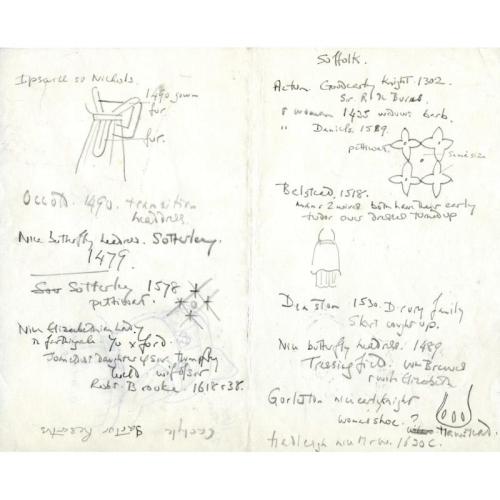 Ipswich St Nichols.
1490 gown
fur
fur.
Occold. 1490. transition
headdress.
Nice butterfly headdress. Sotterley.
1479.
Sotterley 1578
petticoat.
Nice Elizabethan lady
n farthingale Yoxford.
daughter of Sir Humphry
Weld wife of Sir
Robt. Brooke. 1618 + 38.
Suffolk.
Acton Good early Knight. 1302.
Sir R de Bures.
woman 1435 widows barb.
" Daniels. 1589.
petticoat.
Same size
Belstead. 1518.
man + 2 wives both have their early
tudor over dresses turned up
Denston 1530. Drury family
Skirt caught up.
Nice butterfly headdress. 1489
Tressingfield. Wm Brewes
+ wife Elizabeth
Gorleston nice early knight
womans shoe. ?
Hadleigh nice Mr W. 1630 C.